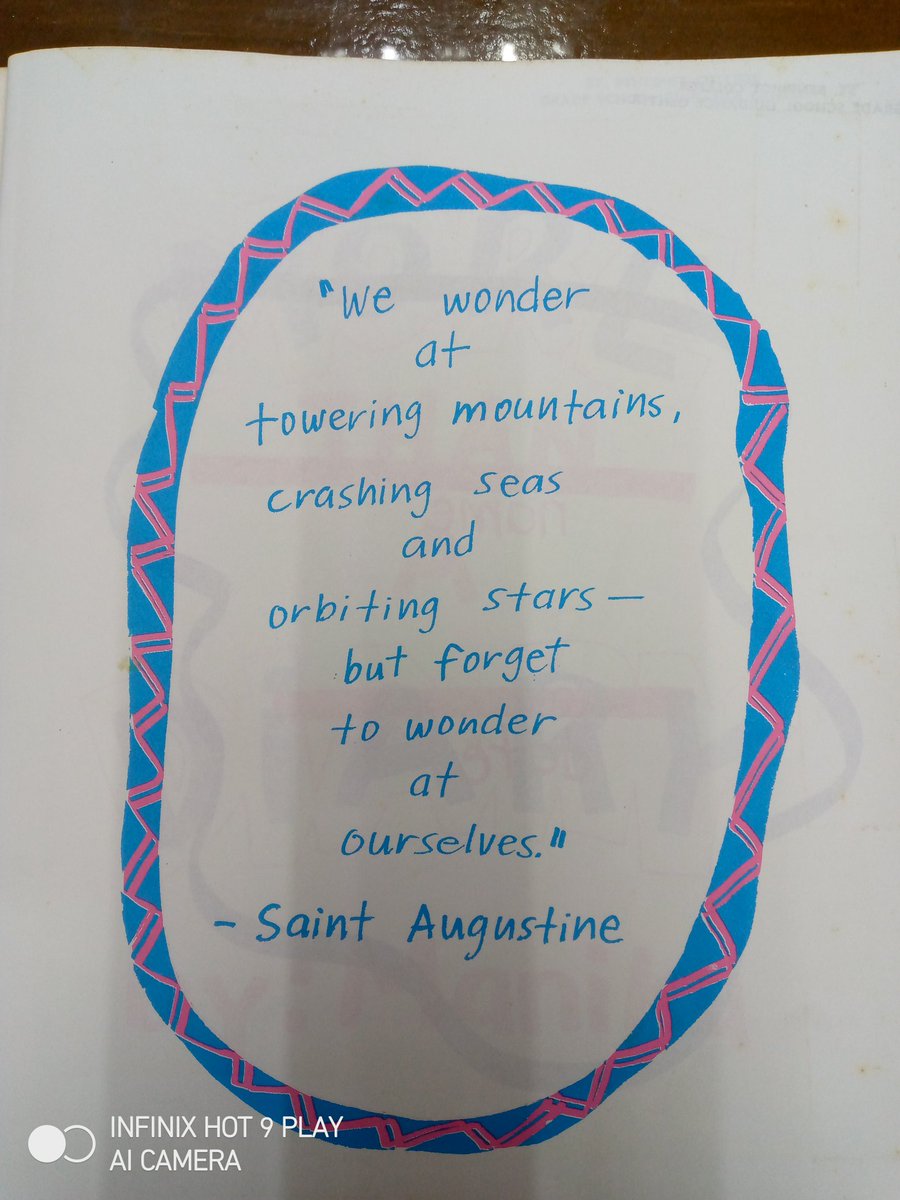 "We wonder
at
towering mountains,
crashing seas
and
orbiting stars —
but forget
to wonder
at
ourselves."
- Saint Augustine
INFINIX HOT 9 PLAY
AI CAMERA